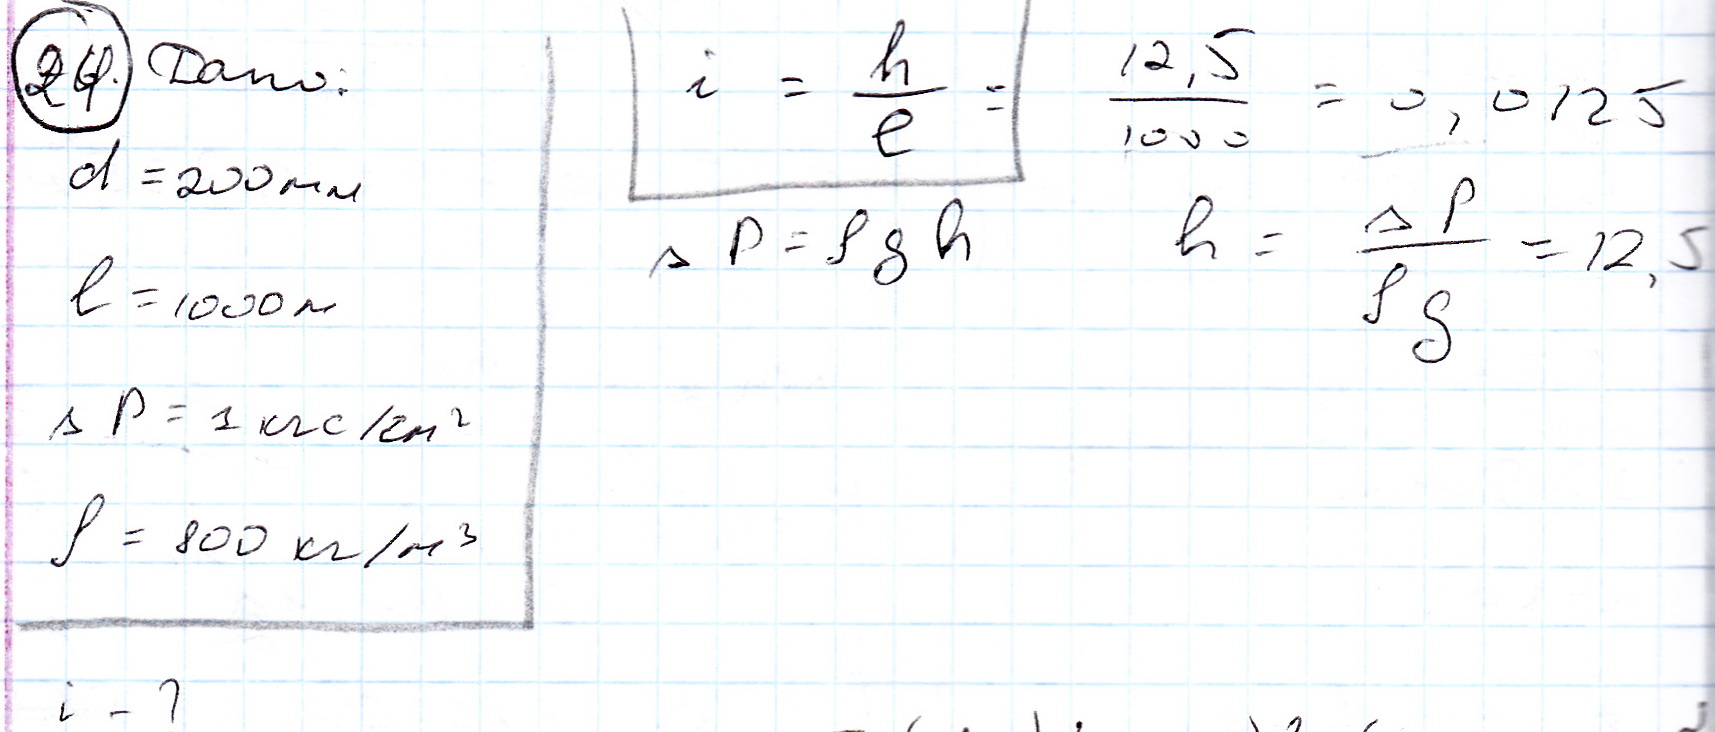 24. Дано:
d = 200мм
l = 1000м
Δ P = 1 кгс/см²
ρ = 800 кг/м³
i - ?
i = h/l = 12,5/1000 = 0,0125
Δ P = ρ g h
h = Δ P/ρ g = 12,5